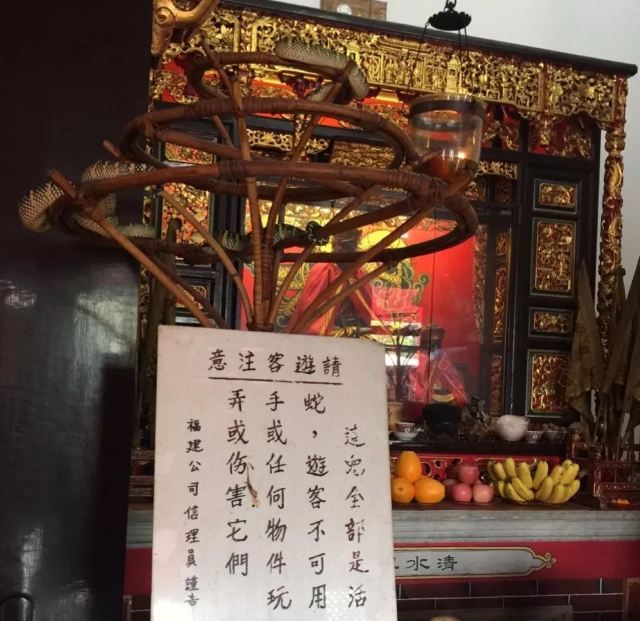 請遊客注意
這兒全部是活
蛇，遊客不可用
手或任何物件玩
弄或伤害它們
福建公司信理員謹告
清水